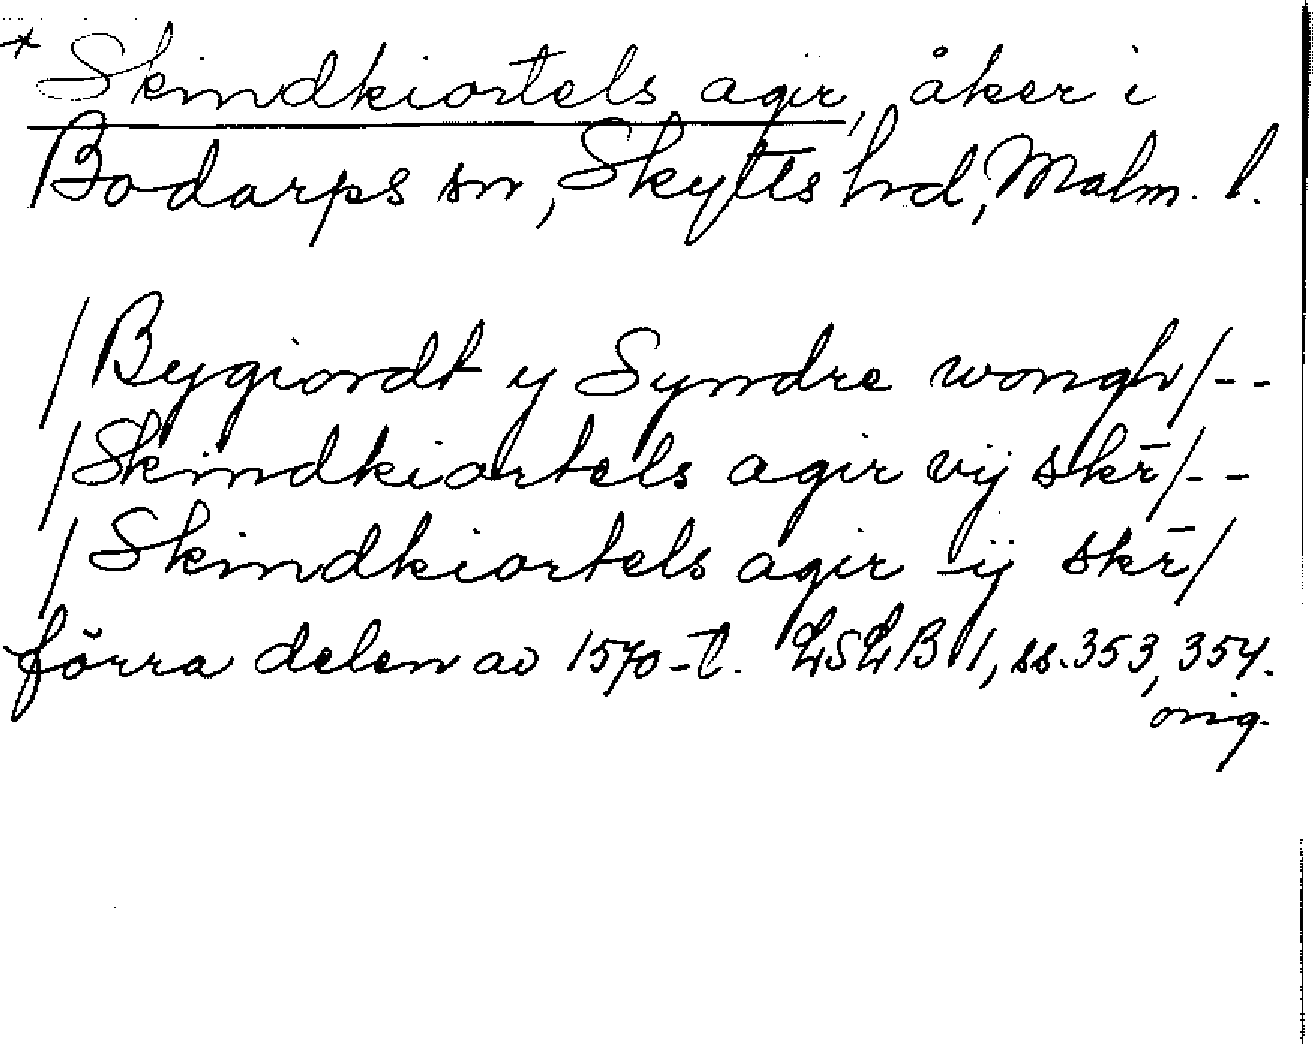 * Skindkiortels agir, åker i
Bodarps sn, Skytts hd, Malm. l.
/Bygiordt y Syndre wongh/--
/Skindkiortels agir vij skr̄/--
/Skindkiortels agir -ij skr̄/
förra delen av 1570-t. LSLB 1, ss. 353, 354.
orig.